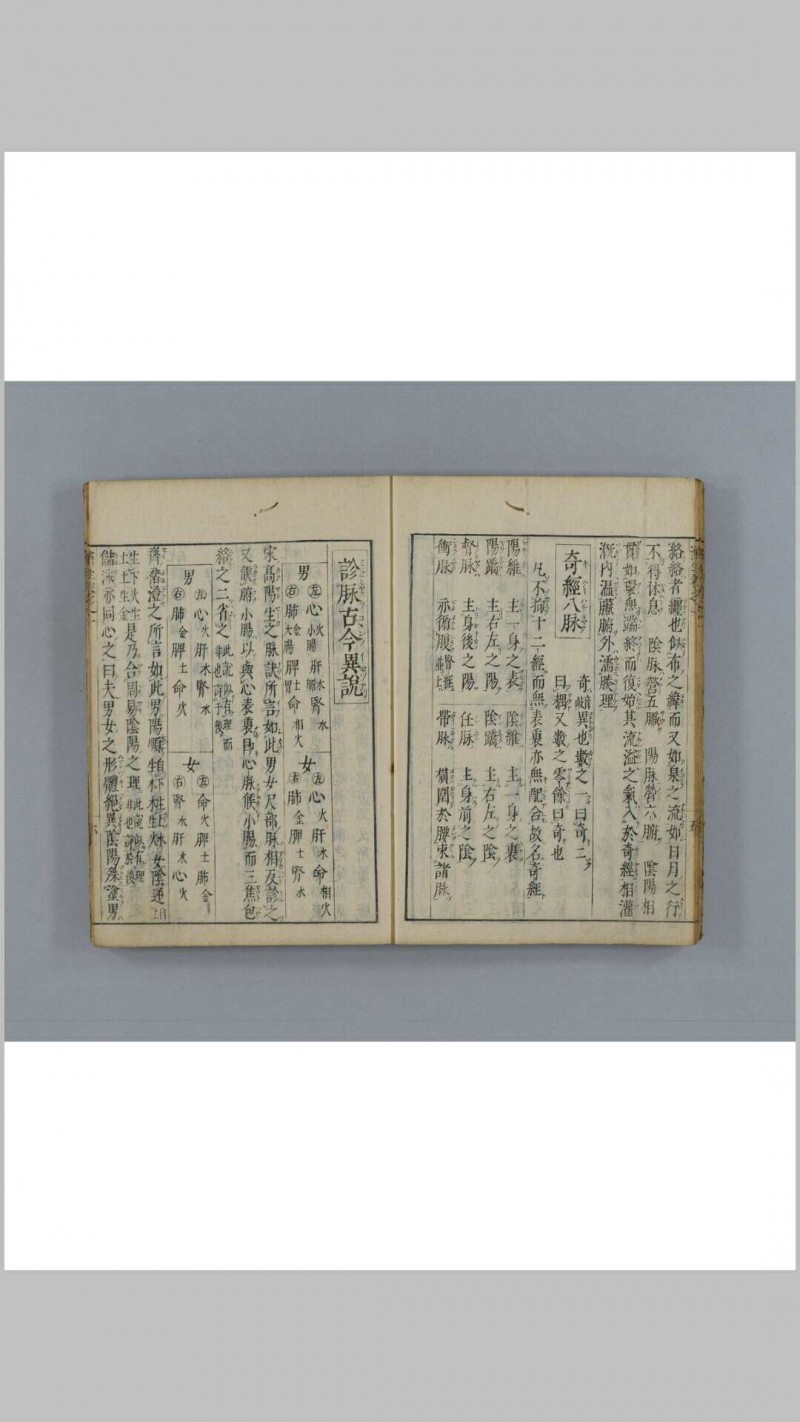 絡絡者纒也似布之緯而又如泉之流如日月之行
不得休息 陰脉營五臟 陽脉營六腑 陰陽相
貫如環無端終而復始其流溢之氣入於奇經相灌
溉内温臟腑外濡腠理
奇經八脉
奇䟣異也數之一曰奇二
曰耦又數之零餘曰奇也
凡不拘十二經而無表裏亦無配合故名奇經
陽維 主一身之表 陰維 主一身之裏
陽蹻 主右左之陽 陰蹻 主右左之陰
督脉 主身後之陽 任脉 主身前之陰
衝脉 亦衛腹 帶脉 横圍於腰束諸脉
診脉古今異說
男
左 心火小腸 肝木膽 腎水
右 肺金大腸 脾土胃 命相火
女
左 心火 肝木 命相火
右 肺金 脾土 腎水
宋高陽生之脉訣所言如此男女尺部脉相反診之
又候腑小腸以與心表裏自心脉候小腸而三焦包
絡之二省之
此說似有理而
非也
男
左 心火 肝木 腎水
右 肺金 脾土 命火
女
左 命火 脾土 肺金
右 腎水 肝木 心火
齊褚澄之所言如此男陽順生
是乃合周易陰陽之理
儲泳亦同心之曰夫男女之形體絕異陰陽殊塗男